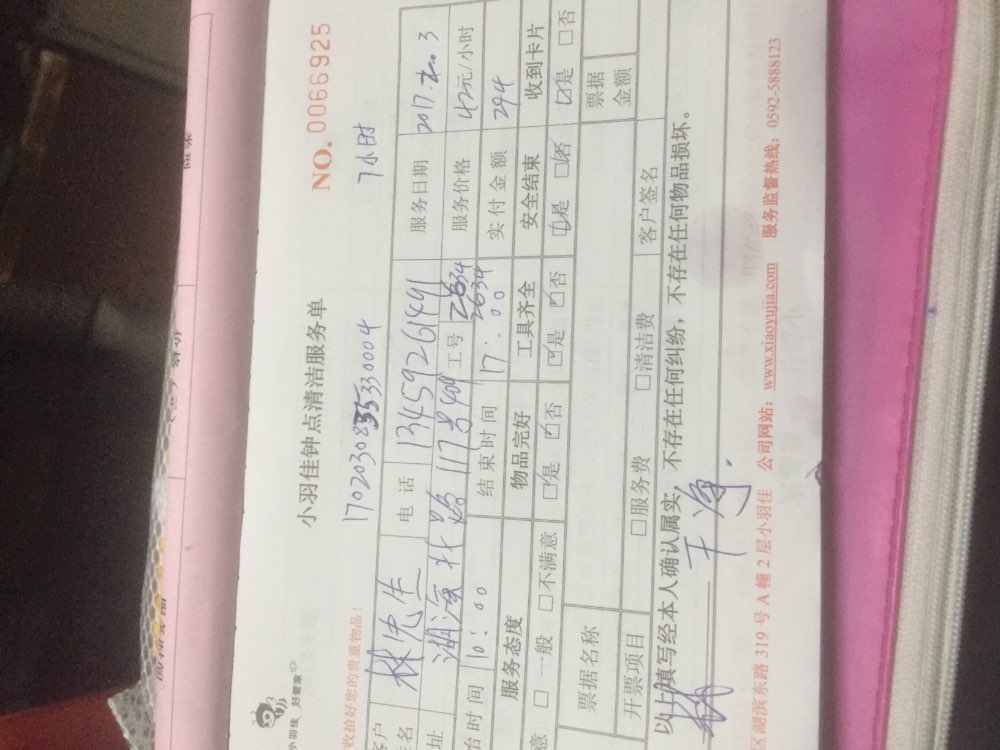 小羽佳 好管家
小羽佳钟点清洁服务单
NO. 0066925
收拾好您的贵重物品！
7小时
客户
姓名
林先生
电 话
13459261491
服务日期
址
湖滨北路117号409
工号
2634
2634
服务价格
42元/小时
始时间
10:00
结束时间
17:00
实 付 金 额
294
服务态度
物品完好
工具齐全
安全结束
收到卡片
意 □ 一般 □ 不满意
☑是 ☑否
☑是 ☑否
☑是 ☑否
☑是 □否
票据名称
票据
金额
开票项目
□服务费
□清洁费
客户签名
以上填写经本人确认属实，不存在任何纠纷，不存在任何物品损坏。
林
干净.
区湖滨东路 319 号 A 幢 2 层小羽佳 公司网站：www.xiaoyujia.com 服务监督热线：0592-5888123